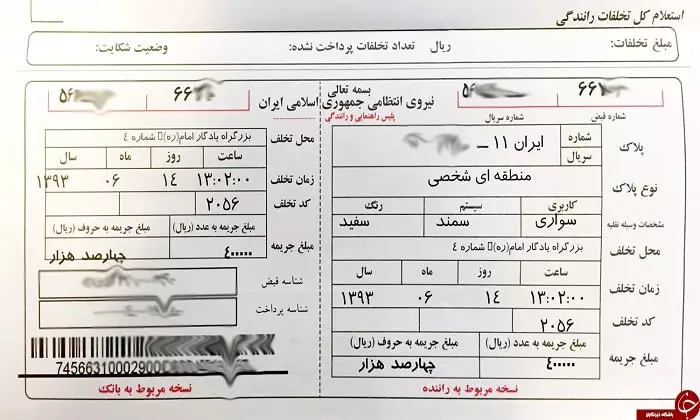 استعلام کل تخلفات رانندگی
مبلغ تخلفات: ریال تعداد تخلفات پرداخت نشده: وضعیت شکایت:
بسمه تعالی
نیروی انتظامی جمهوری اسلامی ایران
پلیس راهنمایی و رانندگی
شماره قبض شماره سریال
پلاک شماره سریال ایران ۱۱ ــ
نوع پلاک منطقه ای شخصی
مشخصات وسیله نقلیه کاربری سیستم رنگ
سواری سمند سفید
محل تخلف بزرگراه یادگار امام(ره)▯ شماره ٤
زمان تخلف ساعت روز ماه سال
۱۳:۰۲:۰۰ ۱۴ ۰۶ ۱۳۹۳
کد تخلف ۲۰۵۶
مبلغ جریمه مبلغ جریمه به عدد (ریال) مبلغ جریمه به حروف (ریال)
۴۰۰۰۰۰ چهارصد هزار
نسخه مربوط به راننده
محل تخلف بزرگراه یادگار امام(ره)▯ شماره ٤
زمان تخلف ساعت روز ماه سال
۱۳:۰۲:۰۰ ۱۴ ۰۶ ۱۳۹۳
کد تخلف ۲۰۵۶
مبلغ جریمه مبلغ جریمه به عدد (ریال) مبلغ جریمه به حروف (ریال)
۴۰۰۰۰۰ چهارصد هزار
شناسه قبض
شناسه پرداخت
74566310002900
نسخه مربوط به بانک
باشگاه خبرنگاران